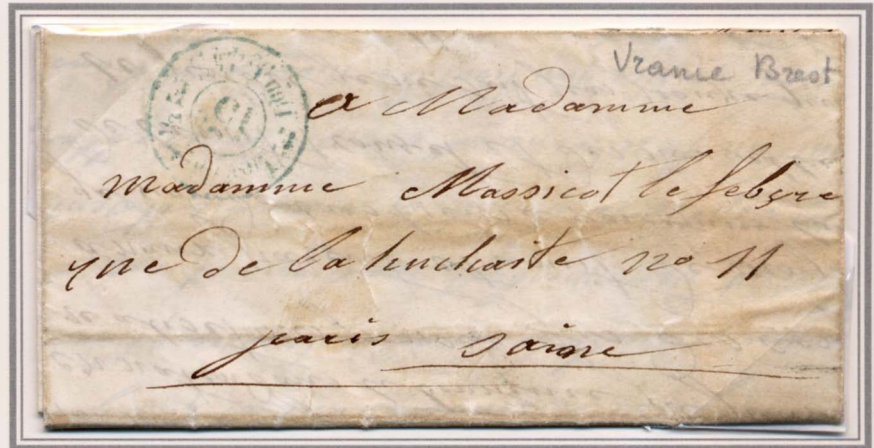 Vranie Brest
a Madamme
madamme Massicot lefebvre
rue De la huchaite no 11
paris saine